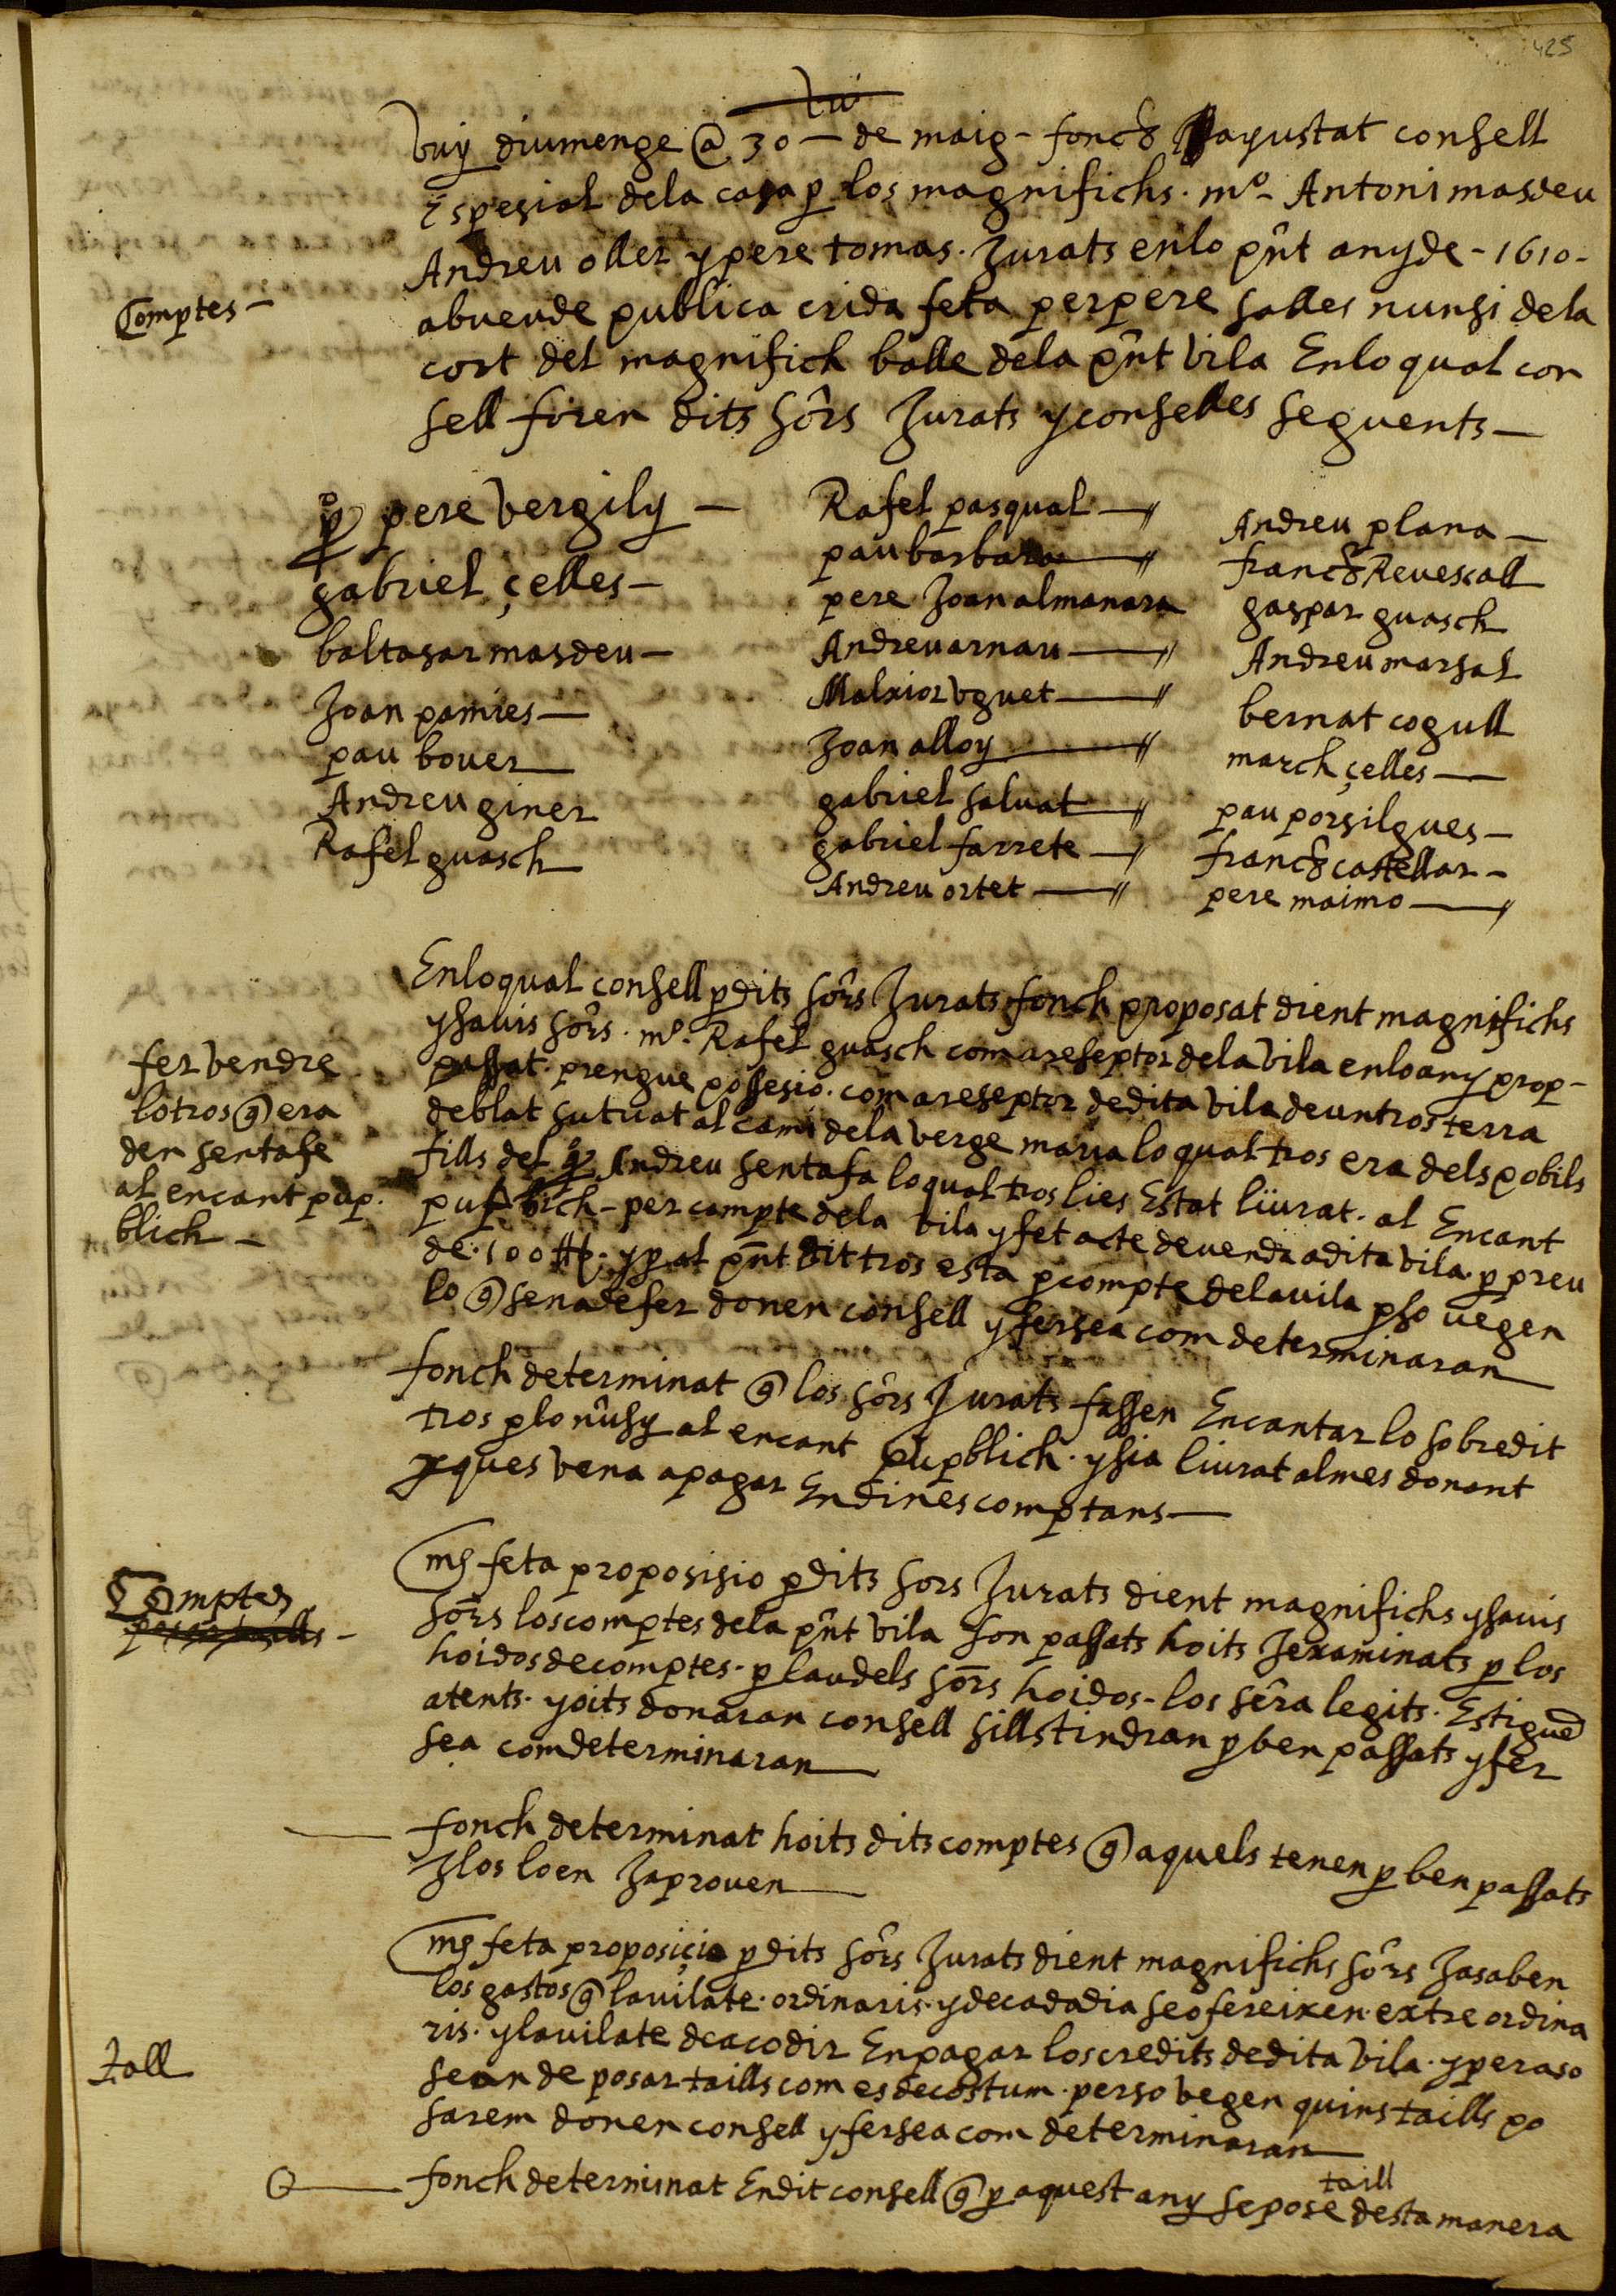 425
Jhs
vuy diumenge @ 30 – de maig – fonch ayustat consell
Espesial dela casa p los magnifichs . mº – Antoni masdeu
Andreu oller y pere tomas . Jurats en lo pñt any de – 1610 –
Comptes –
ab veu de publica crida feta per pere salles nunsi dela
cort del magnifich balle dela pñt vila En lo qual con
sell foren dits sôrs Jurats y conselles seguents –
pº pere vergily –
gabriel çelles –
baltasar masdeu –
Joan pamies –
pau bover
Andreu giner
Rafel guasch
Rafel pasqual –
pau barbara
pere Joan almanara
Andreu arnau –
Malxior uguet –
Joan alloy –
gabriel salvat –
gabriel farrete –
Andreu ortet –
Andreu plana –
franch Revescall
gaspar guasch
Andreu marsal
bernat cogull
march çelles –
pau porsilgues –
franch castellar –
pere maimo –
En lo qual consell p dits sôrs Jurats fonch proposat dient magnifichs
y savis sôrs . mº. Rafel guasch com a reseptor dela vila en lo any prop –
passat . prengue possesio . com a reseptor de dita vila de un tros terra
de blat sutuat al cami dela verge maria lo qual tros era dels pobils
fills del qº Andreu sentafa lo qual tros lies Estat liurat . al Encant
pupblich – per compte dela vila y fet acte de venda a dita vila . p preu
de . 100 ₶ . y p al pñt dit tros esta p compte dela vila pso vegen
lo q sen a de fer donen consell y fersea com determinaran
fer vendre
lo tros q era
den sentafe
al encant pup.
blich –
fonch determinat q los sôrs Jurats fassen Encantar lo sobredit
tros p lo nûsy al encant pupblich . y sia liurat al mes donant
y ques vena a pagar En dines comptans –
Comptes
mes feta proposisio p dits sors Jurats dient magnifichs y savis
sôrs los comptes dela pñt vila son passats hoits Jexaminats p los
hoidos de comptes . p lau dels sôrs hoidos – los sêra legits . Estiguen
atents . y oits donaran consell sills tindran p ben passats y fer
sea com determinaran
fonch determinat hoits dits comptes q aquels tenen p ben passats
J los loen Japroven
mes feta proposiçio p dits sôrs Jurats dient magnifichs sôrs Ja saben
los gastos q la vila te . ordinaris . y de cada dia se ofereixen . extre ordina
ris . y la vila te de acodir En pagar los credits de dita vila . y per aso
se an de posar taills com es de costum . perso vegen quins taills po
sarem donen consell y fersea com determinaran
tall
fonch determinat En dit consell q p aquest any se pose taill desta manera